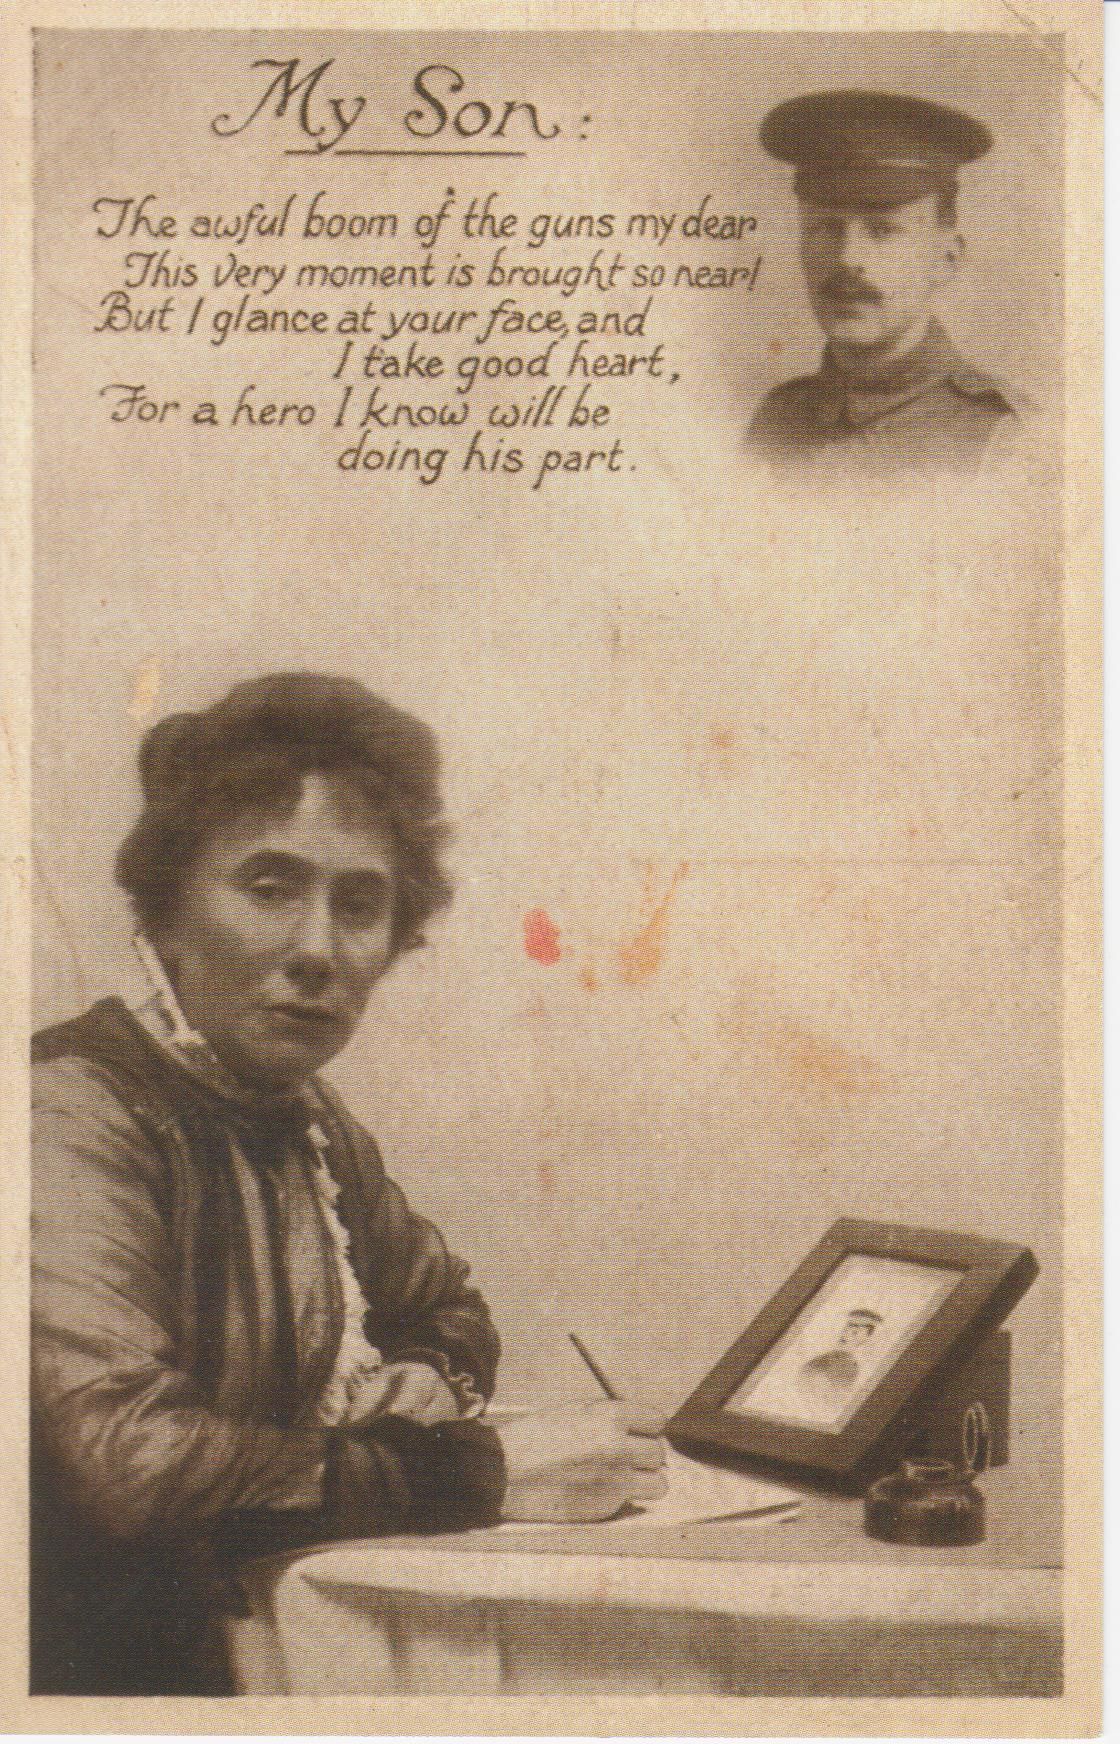 My Son:
The awful boom of the guns my dear
This very moment is brought so near!
But I glance at your face, and
I take good heart,
For a hero I know will be
doing his part.